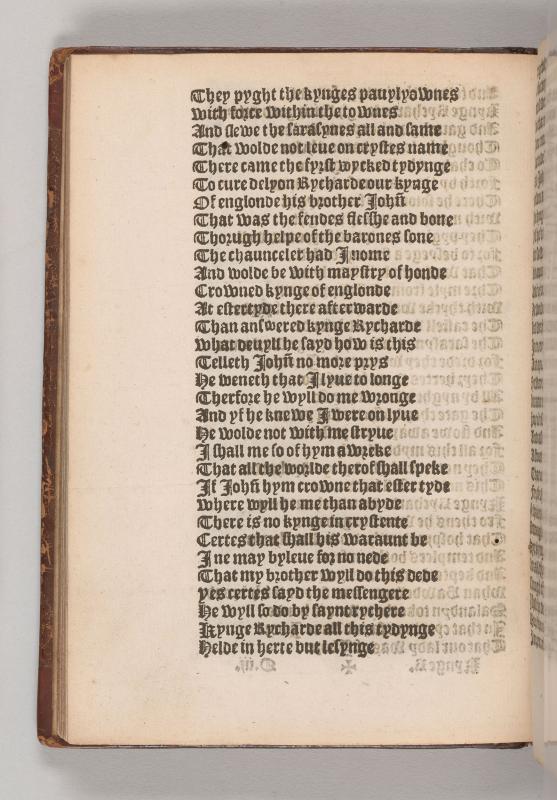 They pyght the kynges pauylyownes
with force within the townes
And slewe the sarasynes all and same
That wolde not leue on crystes name
There came the fyrst wycked tydynge
To cure delyon Rycharde our kynge
Of englonde his brother Johñ
That was the fendes flesshe and bone
Thorugh helpe of the barones sone
The chaunceler had J nome
And wolde be with maystry of honde
Crowned kynge of englonde
At estertyde there afterwarde
Than answered kynge Rycharde
what deuyll he sayd how is this
Telleth Johñ no more prys
He weneth that J lyue to longe
Therfore he wyll do me wronge
And yf he knewe J were on lyue
He wolde not with me stryue
J shall me so of hym awreke
That all the worlde therof shall speke
Jf Johñ hym crowne that ester tyde
where wyll he me than abyde
There is no kynge in crystente
Certes that shall his waraunt be
J ne may byleue for no nede
That my brother wyll do this dede
yes certes sayd the messengere
He wyll so do by saynt rychere
Kynge Rycharde all this tydynge
Helde in herte but lesynge